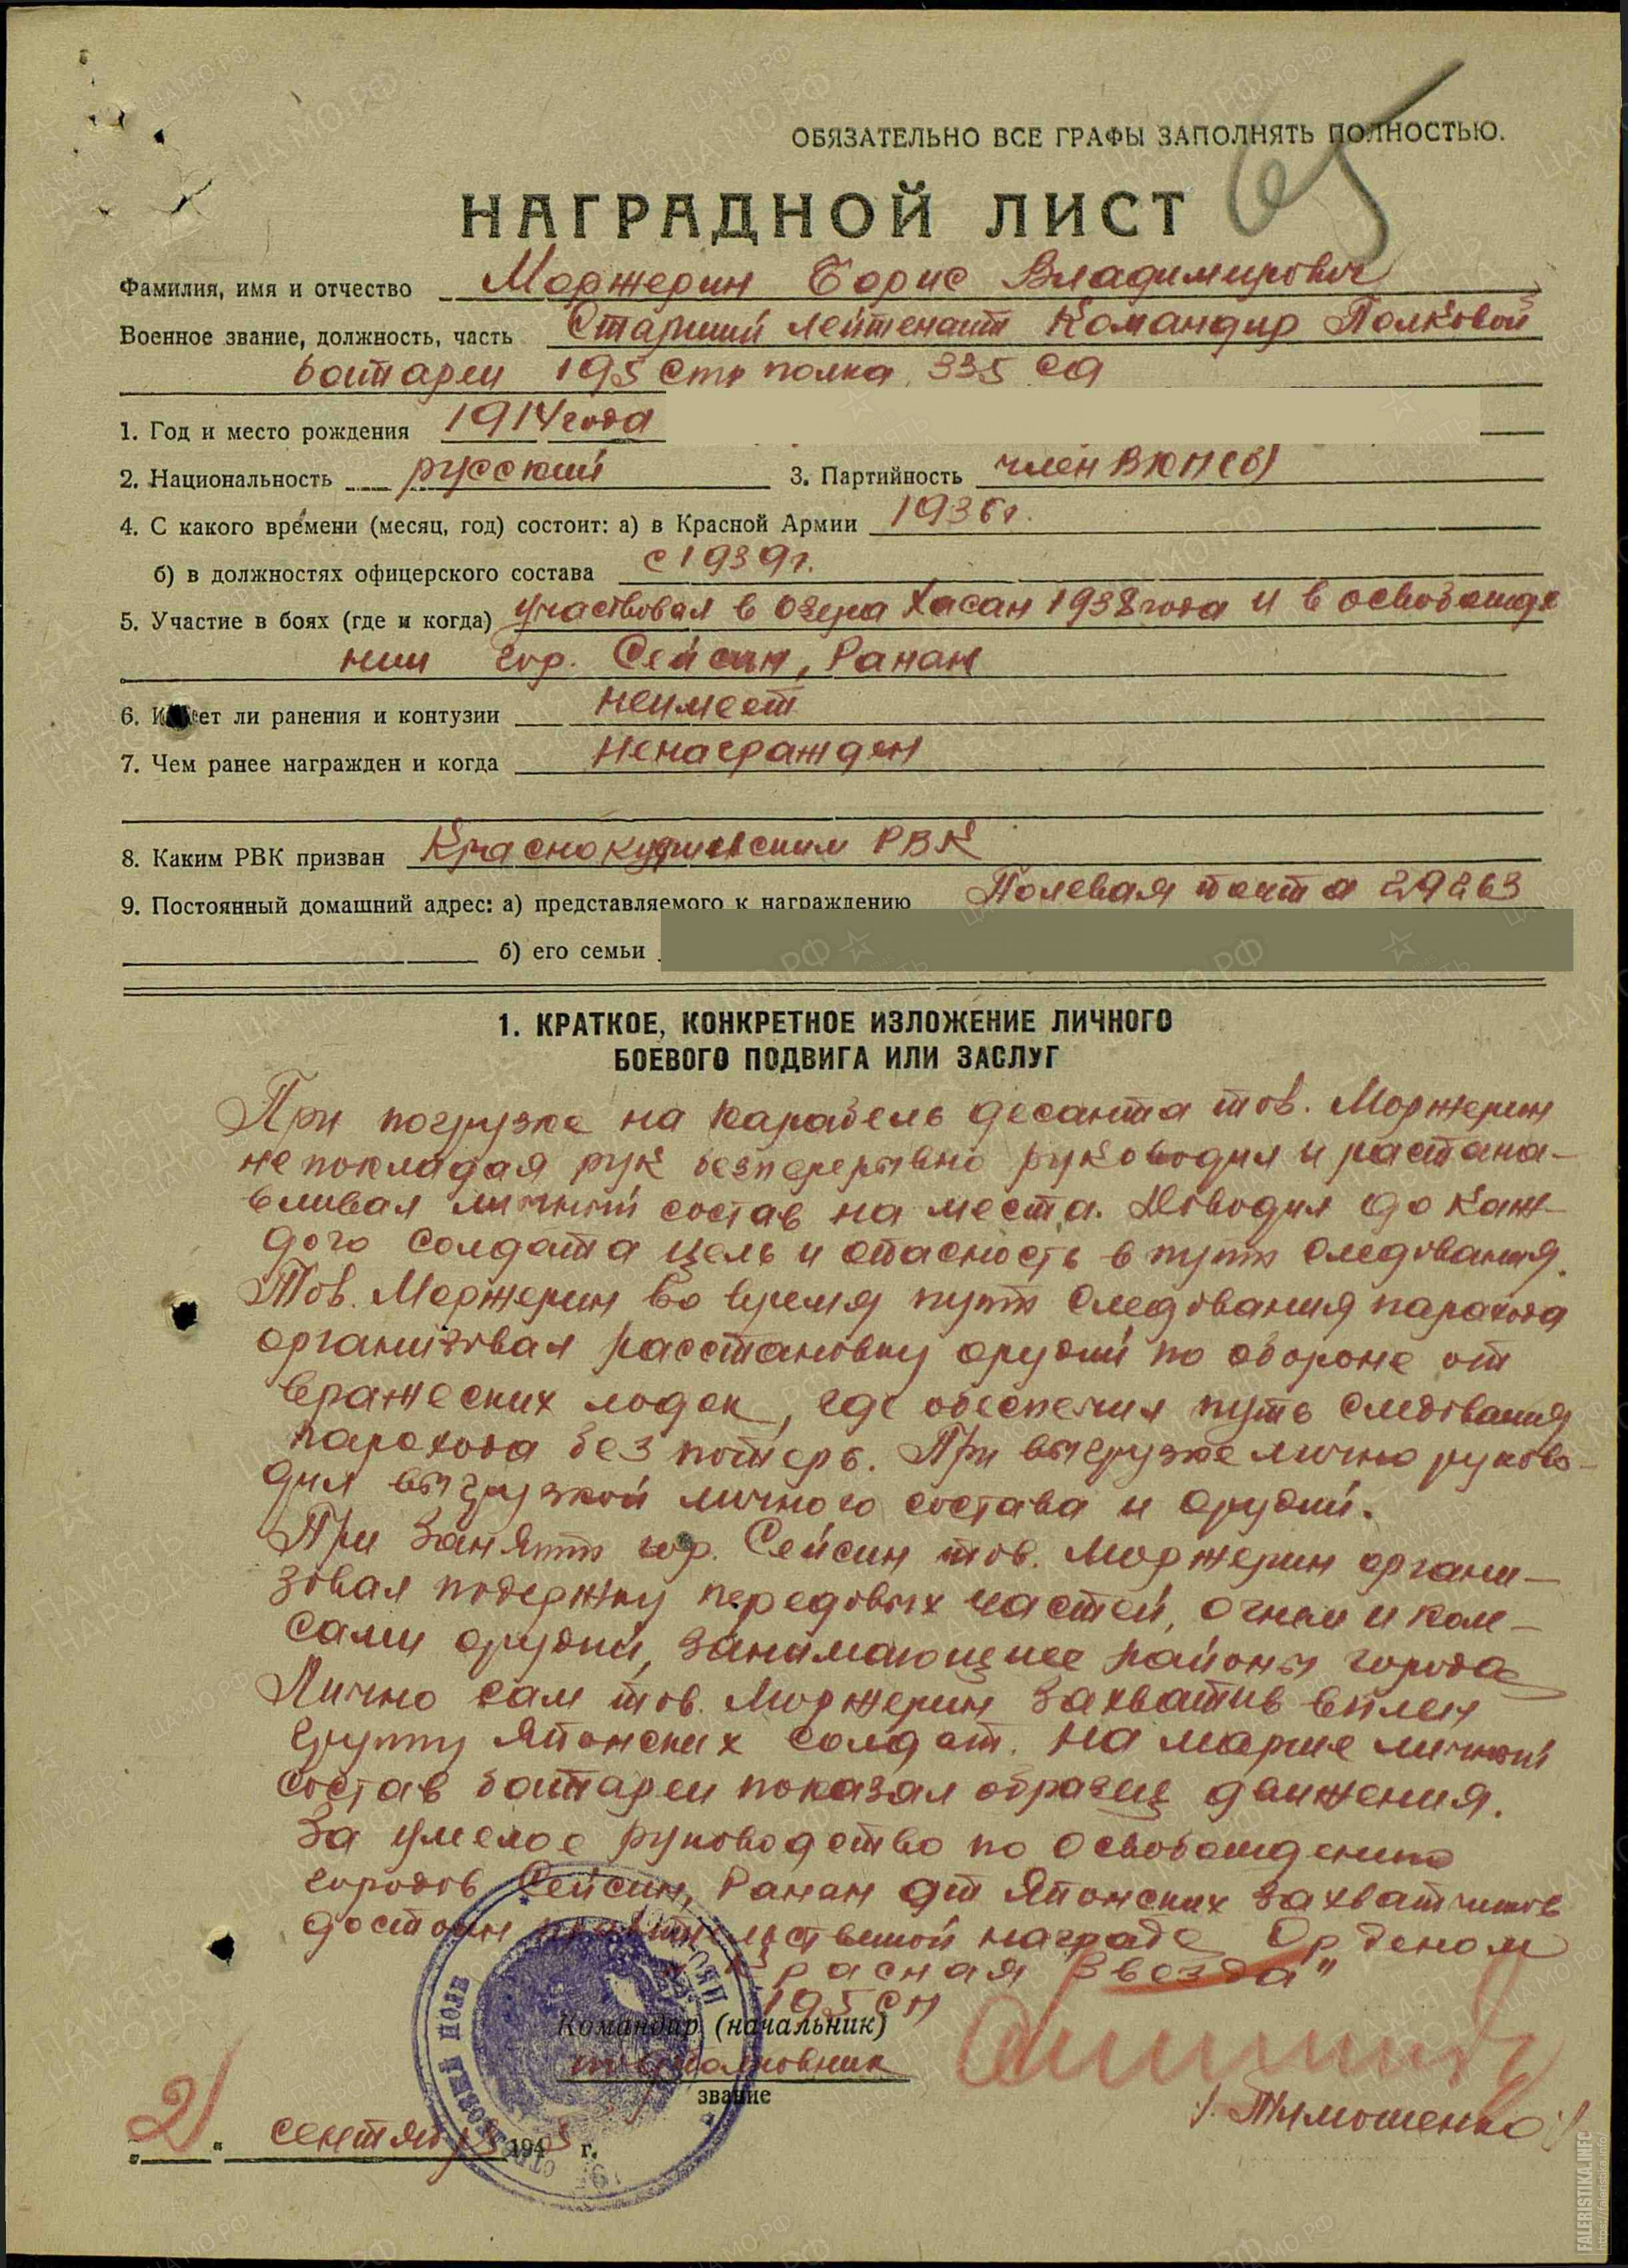 65
ОБЯЗАТЕЛЬНО ВСЕ ГРАФЫ ЗАПОЛНЯТЬ ПОЛНОСТЬЮ.
НАГРАДНОЙ ЛИСТ
Фамилия, имя и отчество Моржерин Борис Владимирович
Военное звание, должность, часть Старший лейтенант Командир Полковой
батареи 195 Стр полка 335 СД
1. Год и место рождения 1914 года
2. Национальность русский 3. Партийность член ВКП(б)
4. С какого времени (месяц, год) состоит: а) в Красной Армии 1936 г.
б) в должностях офицерского состава с 1939 г.
5. Участие в боях (где и когда) участвовал в озера Хасан 1938 года и в освобожде
нии гор. Сейсин, Ранан
6. Имеет ли ранения и контузии неимеет
7. Чем ранее награжден и когда ненагражден
8. Каким РВК призван РВК
9. Постоянный домашний адрес: а) представляемого к награждению Полевая почта 29263
б) его семьи
1. КРАТКОЕ, КОНКРЕТНОЕ ИЗЛОЖЕНИЕ ЛИЧНОГО
БОЕВОГО ПОДВИГА ИЛИ ЗАСЛУГ
При погрузке на карабель десанта тов. Моржерин
непокладая рук безпрерывно руководил и растана-
вливал личный состав на места. Доводил до каж-
дого солдата цель и опасность в пути следования.
Тов. Моржерин во время пути следования парохода
организовал расстановку орудий по обороне от
вражеских лодок, где обеспечил путь следования
парохода без потерь. При выгрузке лично руково-
дил выгрузкой личного состава и орудий.
При занятии гор. Сейсин тов. Моржерин органи-
зовал подержку передовых частей, огнем и коле-
сами орудий, занимающие районы города
Лично сам тов. Моржерин захватив в плен
группу Японских солдат. На марше личный
состав батареи показал образец движения.
За умелое руководство по освобождению
городов Сейсин, Ранан от Японских захватчиков
достоин правительственной награде Орденом
"Красная Звезда"
195 СП
Командир (начальник)
подполковник
звание
/. Тимошенко /
"21" сентября 1945 г.
FALERISTIKA.INFO
https://faleristika.info/
ЦАМО.РФ